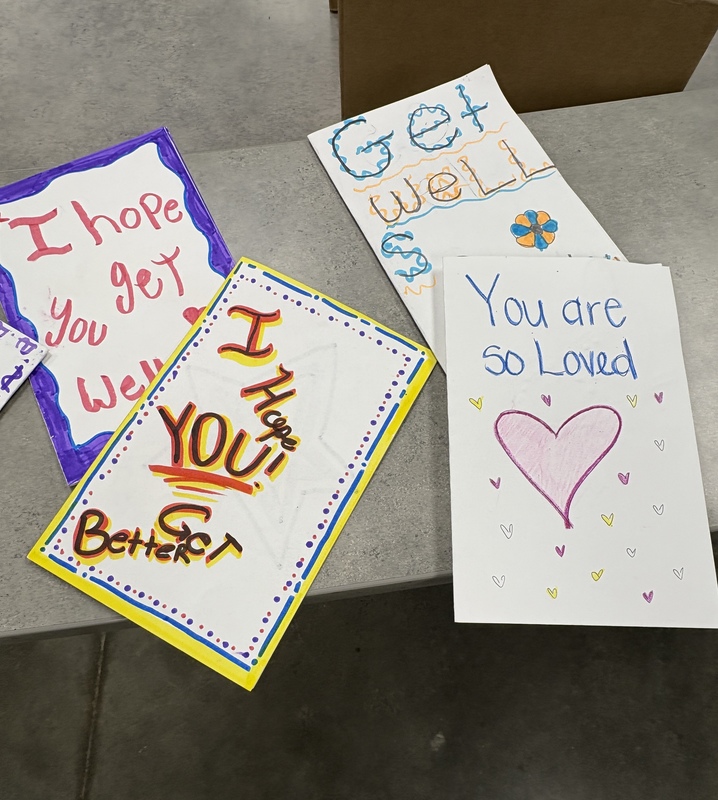 I hope
get
you
Well
Get
weLL
S
I
Hope
YOU!
Get
Better
You are
so Loved